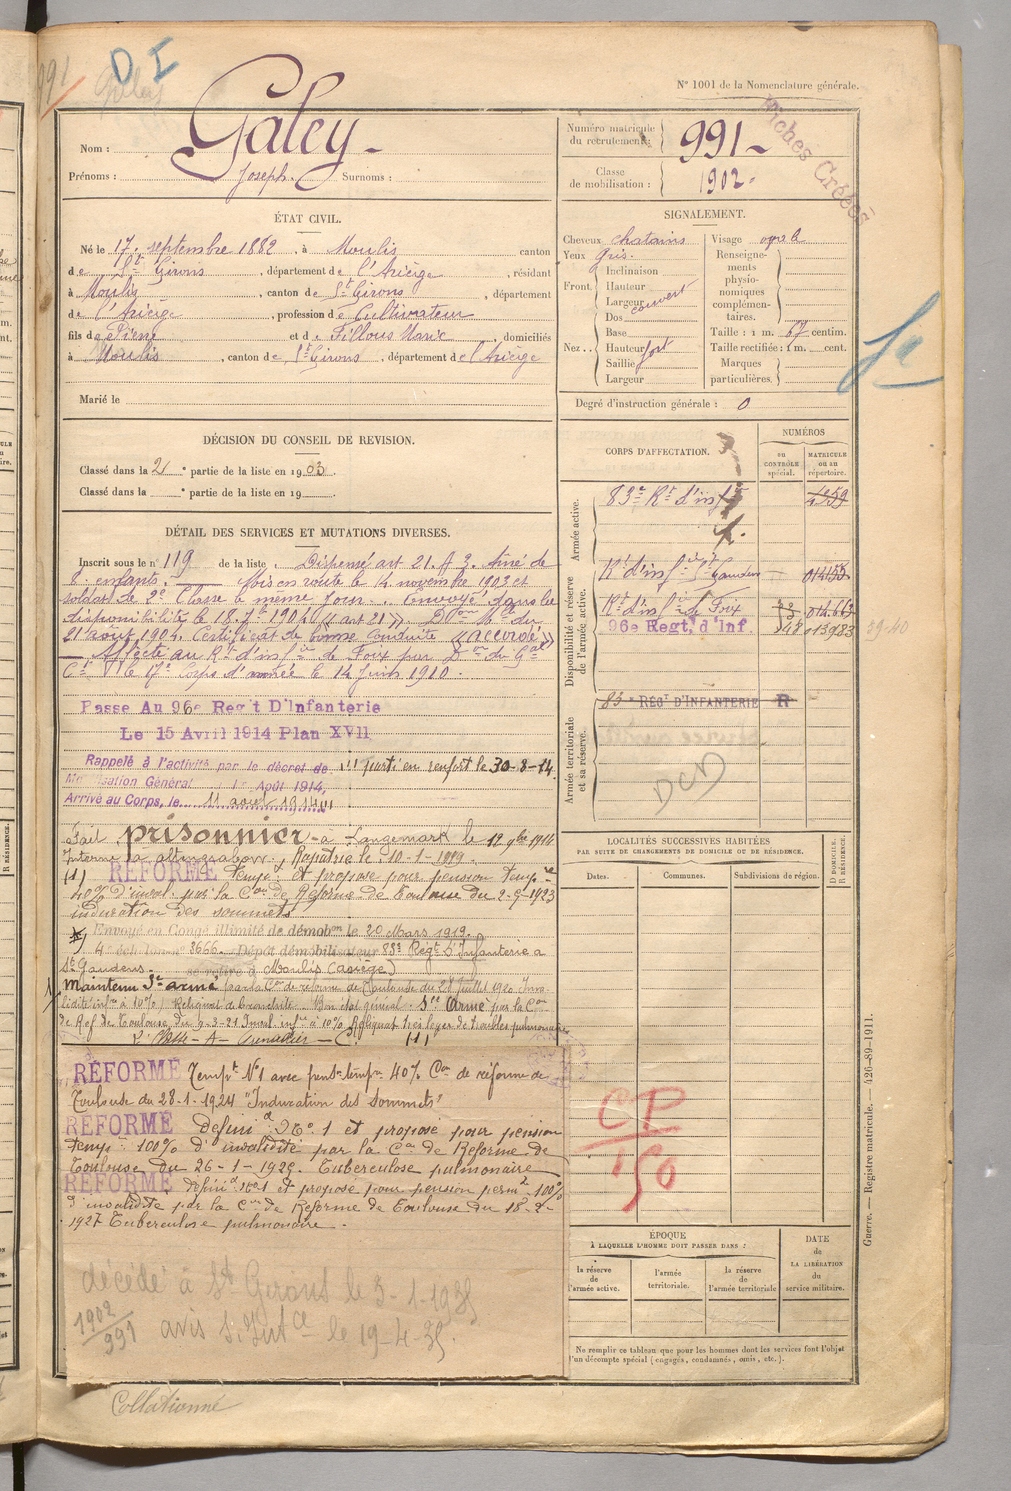 991
D I
N° 1001 de la Nomenclature générale.
Nom : Galey
Prénoms : Joseph. Surnoms :
Numéro matricule du recrutement : 991
Classe de mobilisation : 1902
Fiches Créées
ÉTAT CIVIL.
Né le 17 septembre 1882, à Moulis canton
de St Girons, département de l'Ariège, résidant
à Moulis, canton de St Girons, département
de l'Ariège, profession de Cultivateur
fils de Pierre et de Fillous Marie, domiciliés
à Moulis, canton de St Girons, département de l'Ariège
Marié le
SIGNALEMENT.
Cheveux chatains
Yeux gris.
Front. Inclinaison
Hauteur
Largeur couvert
Nez.. Dos
Base
Hauteur fort
Saillie
Largeur
Visage ovale
Renseignements physionomiques complémentaires.
Taille : 1 m. 67 centim.
Taille rectifiée : 1 m. cent.
Marques particulières.
Degré d'instruction générale : 0
DÉCISION DU CONSEIL DE REVISION.
Classé dans la 2e partie de la liste en 1903.
Classé dans la e partie de la liste en 19
CORPS D'AFFECTATION.
NUMÉROS
au CONTRÔLE spécial.
MATRICULE ou au répertoire.
Armée active.
83e Rt d'inf
Disponibilité et réserve de l'armée active.
Rt d'infie St Gaudens
Rt d'infie de Foix
96e Regt d'Inf
Armée territoriale et sa réserve.
83e REGT D'INFANTERIE R
DCD
DÉTAIL DES SERVICES ET MUTATIONS DIVERSES.
Inscrit sous le n° 119 de la liste. Dispensé art 21. § 3. Aîné de
8 enfants. Mis en route le 14 novembre 1903 et
soldat de 2e Classe le même jour. Envoyé dans la
disponibilité le 18. 7bre 1904 (art 21). Don Mlle du
21 août 1904. Certificat de bonne conduite "accordé"
Affecté au Rt d'infie de Foix par Don du Gal
Ct le 17e Corps d'armée le 14 juin 1910.
Passe Au 96e Reg't D'Infanterie
Le 15 Avril 1914 Plan XVII
Rappelé à l'activité par le décret de parti en renfort le 30-8-14.
Mobilisation Général 1er Août 1914,
Arrivé au Corps, le 11 août 1914
Fait prisonnier à Langemark le 12 9bre 1914
Interné à altengrabow. Rapatrié le 10-1-1919.
(1) RÉFORMÉ tempt et proposé pour pension tempre
40% d'inval. par la Con de Réforme de Toulouse du 2-9-1923
induration des sommets
Envoyé en Congé illimité de démobon le 20 Mars 1919.
4e échelon n° 3666. Dépôt démobilisateur 83e Régt d'Infanterie à
St Gaudens. se retire à Moulis (Ariège)
Maintenu Sce armé par la Con de réforme de Toulouse du 28 Juillet 1920 Inva-
lidité infre à 10% Reliquat de bronchite. Bon état général. Sce Armé par la Con
de Ref de Toulouse du 9-3-21 Inval. infre à 10% Reliquat très léger de troubles pulmonaires
RÉFORMÉ Tempt N°1 avec pensn tempre 40% Con de réforme de
Toulouse du 28-1-1924 "Induration des sommets"
RÉFORMÉ Définid N° 1 et proposé pour pension
temp. 100% d'invalidité par la Con de Reforme de
Toulouse du 26-1-1925. Tuberculose pulmonaire
RÉFORMÉ défini N°1 et proposé pour pension perm 100%
d'invalidité par la Con de Reforme de Toulouse du 18-2-
1927 Tuberculose pulmonaire.
décédé à St Girons le 3-1-1935
avis S. Intce le 19-4-35.
1902
991
Collationné
LOCALITÉS SUCCESSIVES HABITÉES
PAR SUITE DE CHANGEMENTS DE DOMICILE OU DE RÉSIDENCE.
Dates. Communes. Subdivisions de région. D DOMICILE. R RÉSIDENCE.
CP
150
ÉPOQUE
À LAQUELLE L'HOMME DOIT PASSER DANS :
la réserve de l'armée active.
l'armée territoriale.
la réserve de l'armée territoriale
DATE de LA LIBÉRATION du service militaire.
Ne remplir ce tableau que pour les hommes dont les services font l'objet
d'un décompte spécial (engagés, condamnés, omis, etc.).
Guerre. — Registre matricule. — 426-89-1911.